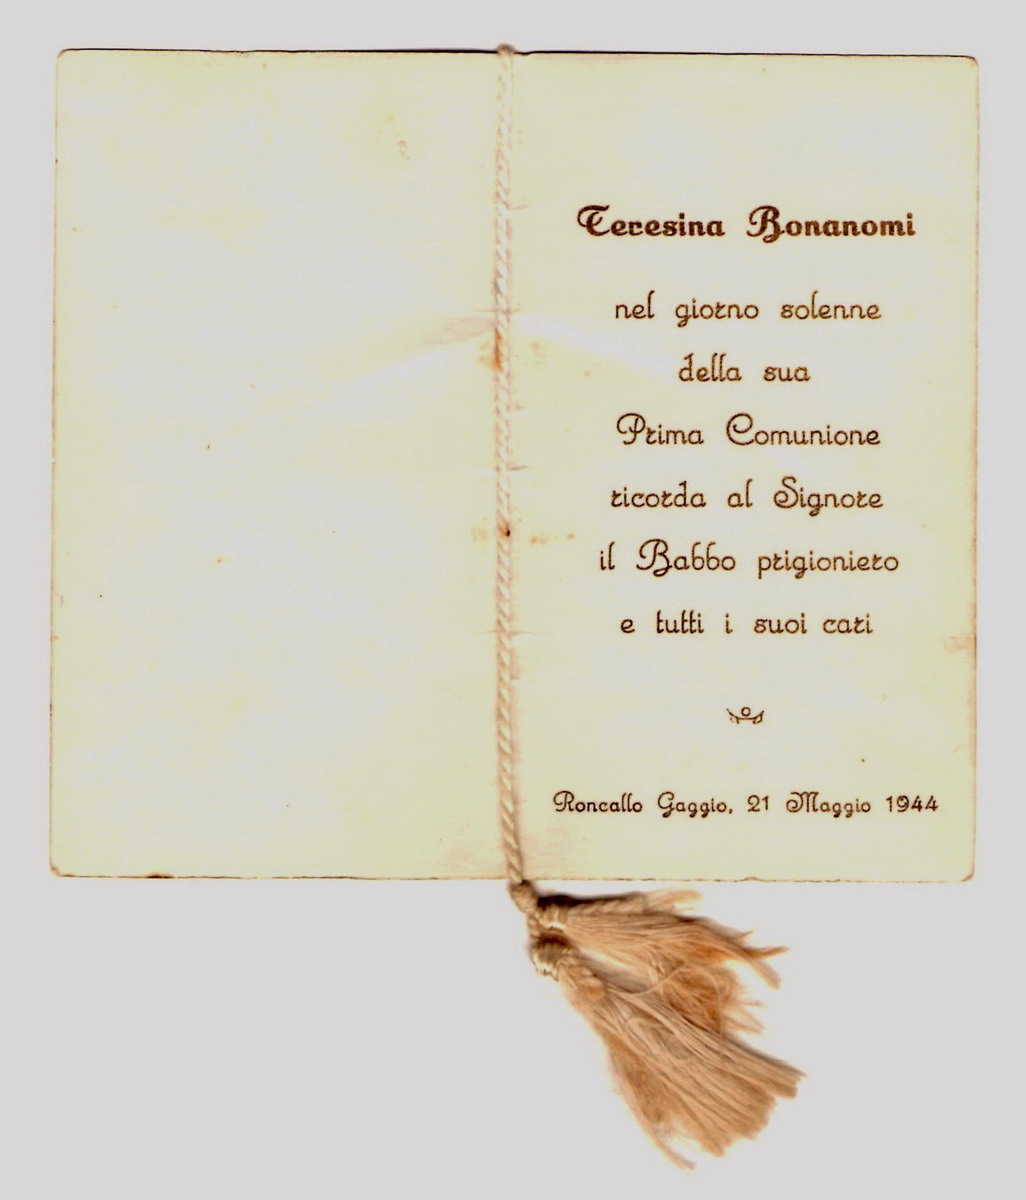 Teresina Bonanomi
nel giorno solenne
della sua
Prima Comunione
ricorda al Signore
il Babbo prigioniero
e tutti i suoi cari
Roncallo Gaggio, 21 Maggio 1944